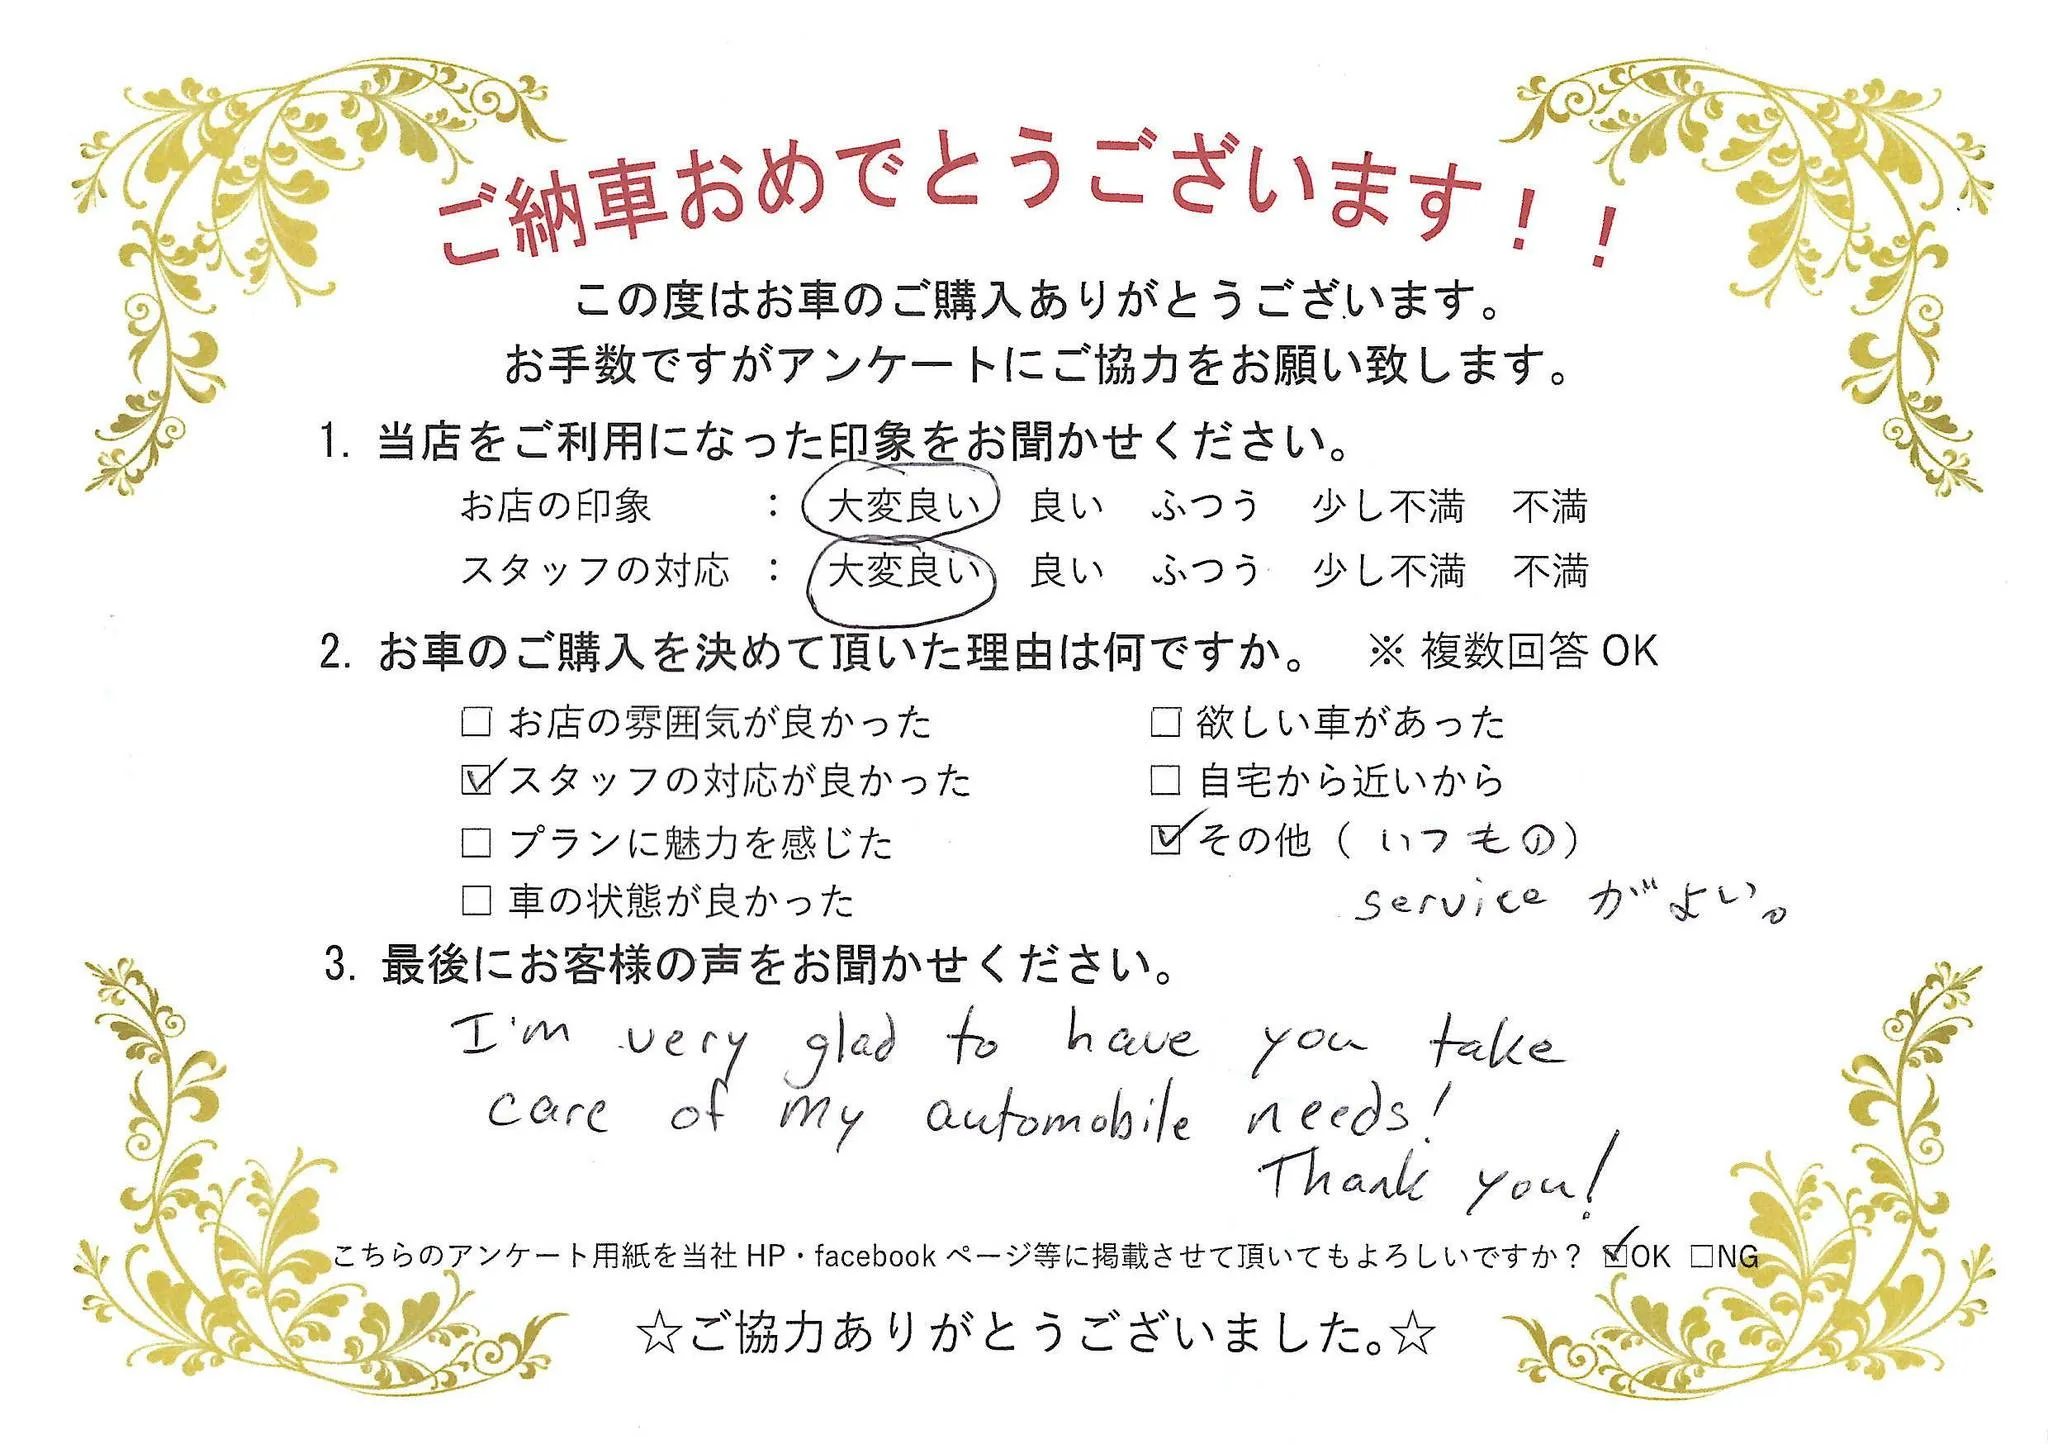 ご納車おめでとうございます！！
この度はお車のご購入ありがとうございます。
お手数ですがアンケートにご協力をお願い致します。
1. 当店をご利用になった印象をお聞かせください。
お店の印象 ： 大変良い 良い ふつう 少し不満 不満
スタッフの対応 ： 大変良い 良い ふつう 少し不満 不満
2. お車のご購入を決めて頂いた理由は何ですか。 ※ 複数回答 OK
□ お店の雰囲気が良かった □ 欲しい車があった
☑ スタッフの対応が良かった □ 自宅から近いから
□ プランに魅力を感じた ☑ その他（ いつもの）
□ 車の状態が良かった service がよい。
3. 最後にお客様の声をお聞かせください。
I'm very glad to have you take
care of my automobile needs!
Thank you!
こちらのアンケート用紙を当社 HP・facebook ページ等に掲載させて頂いてもよろしいですか？ ☑OK □NG
☆ご協力ありがとうございました。☆